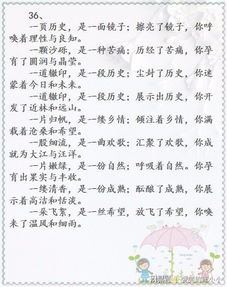 36、
一页历史，是一面镜子；擦亮了镜子，你呼
唤着理性与良知。
一颗沙砾，是一种苦痛；历经了苦痛，你孕
育了圆润与晶莹。
一道辙印，是一段历史；尘封了历史，你迷
蒙着今日和未来。
一道辙印，是一段历史；展示出历史，你开
发了近林和远山。
一片归帆，是一缕乡情；倾注着乡情，你满
载着沧桑和希望。
一股细流，是一曲欢歌；汇聚了欢歌，你成
就为大江与汪洋。
一片嫩绿，是一份自然；呼吸着自然，你孕
育出果实与丰收。
一缕清香，是一份成熟；酝酿了成熟，你展
示着高洁和恬淡。
一朵飞絮，是一丝希望，放飞了希望，你唤
来了温风和细雨。